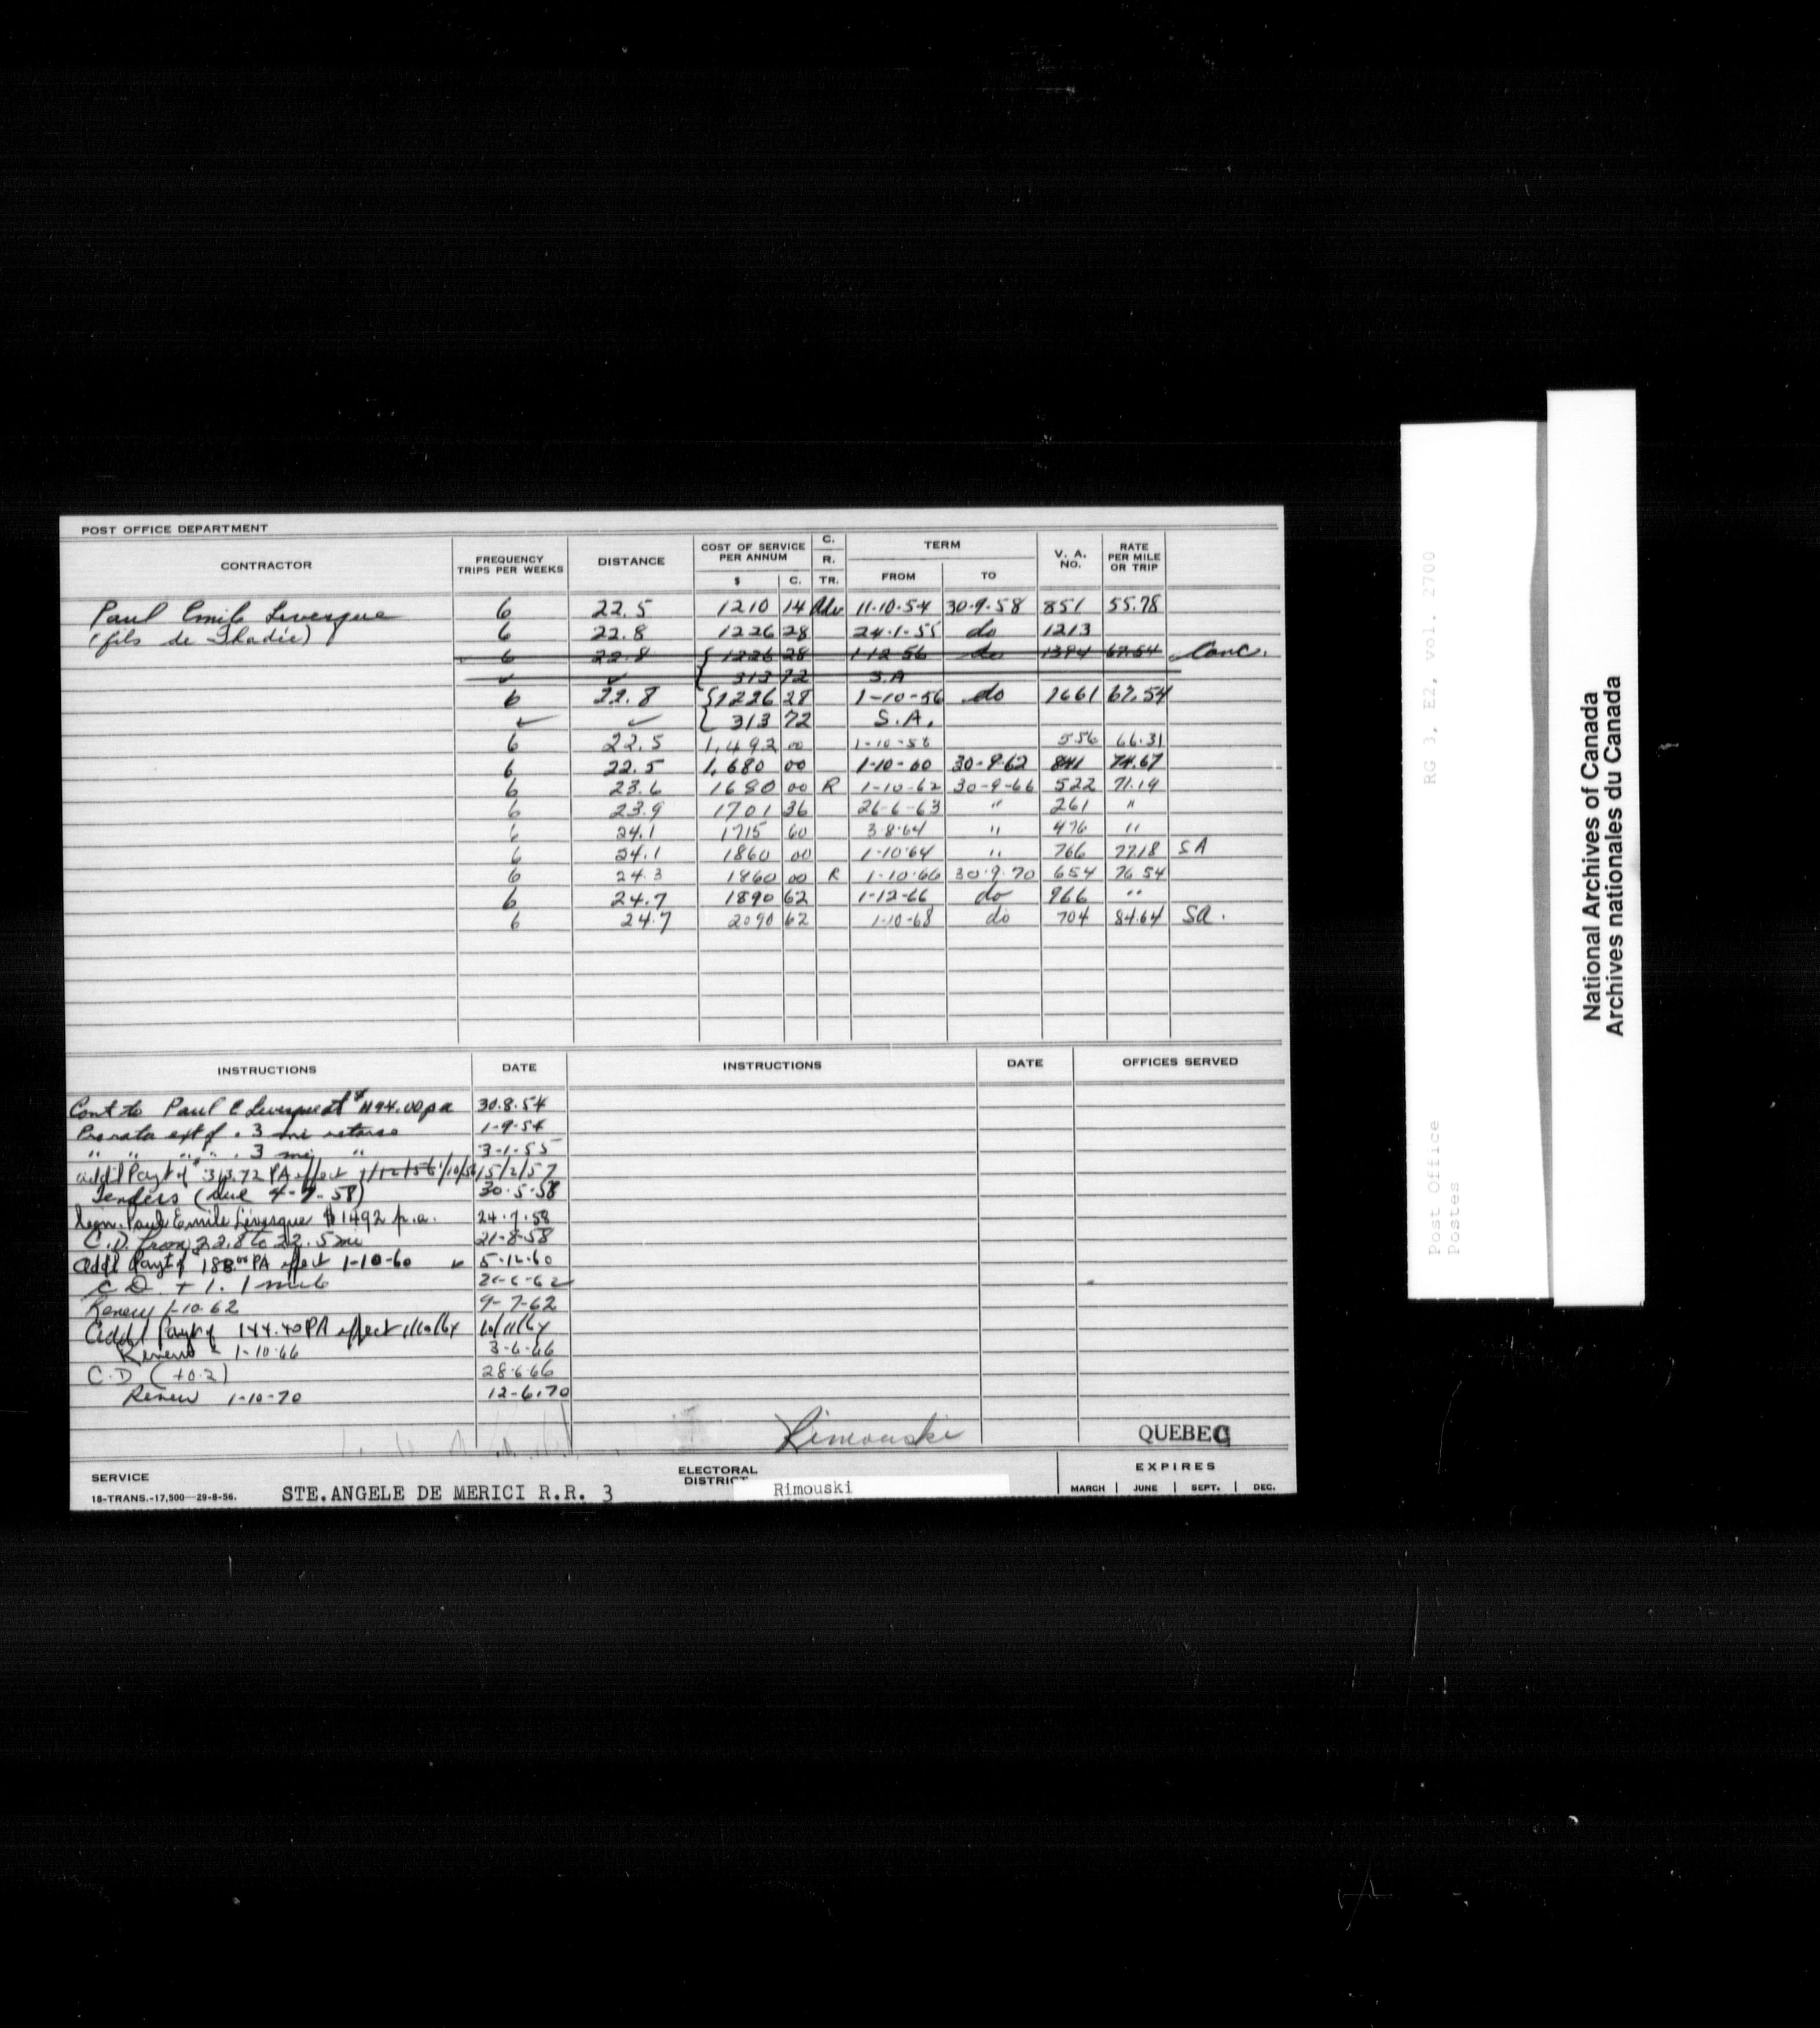 POST OFFICE DEPARTMENT
CONTRACTOR FREQUENCY TRIPS PER WEEKS DISTANCE COST OF SERVICE PER ANNUM $ C. C. R. TR. TERM FROM TO V. A. NO. RATE PER MILE OR TRIP
Paul Emile Levesque 6 22.5 1210 14 Adv. 11-10-54 30-9-58 851 55.78
(fils de Thadée) 6 22.8 1226 28 24-1-55 do 1213
6 22.8 { 1226 28 1-12-56 do 1394 67.54 Canc.
✓ ✓ 313 72 S.A
6 22.8 { 1226 28 1-10-56 do 1661 67.54
✓ ✓ 313 72 S.A.
6 22.5 1,492 00 1-10-58 556 66.31
6 22.5 1,680 00 1-10-60 30-9-62 841 74.67
6 23.6 1680 00 R 1-10-62 30-9-66 522 71.19
6 23.9 1701 36 26-6-63 " 261 "
6 24.1 1715 60 3-8-64 " 476 "
6 24.1 1860 00 1-10-64 " 766 77.18 SA
6 24.3 1860 00 R 1-10-66 30-9-70 654 76 54
6 24.7 1890 62 1-12-66 do 966 "
6 24.7 2090 62 1-10-68 do 704 84.64 SA.
INSTRUCTIONS DATE INSTRUCTIONS DATE OFFICES SERVED
Cont to Paul E Levesque at $1194.00 pa 30.8.54
Pro rata ext of .3 mi 1-9-54
" " " " .3 mi " 3-1-55
add'l Payt of $313.72 PA effect 1/12/56 1/10/56 15/2/57
Tenders (due 4-7-58) 30-5-58
Paul Emile Lévesque $1492 p.a. 24-7-58
C.D. from 22.8 to 22.5 mi 21-8-58
Addl Payt of 188.00 PA effect 1-10-60 5-12-60
C D. + 1.1 mile 26-6-62
Renew 1-10-62 9-7-62
Addl Payt of 144.40 PA effect 1/10/64 10/11/64
Renew - 1-10-66 3-6-66
C.D. (+0.2) 28-6-66
Renew 1-10-70 12-6-70
Rimouski QUEBEC
SERVICE STE.ANGELE DE MERICI R.R. 3 ELECTORAL DISTRICT Rimouski EXPIRES
18-TRANS.-17,500—29-8-56. MARCH | JUNE | SEPT. | DEC.
RG 3, E2, vol. 2700
Post Office
Postes
National Archives of Canada
Archives nationales du Canada